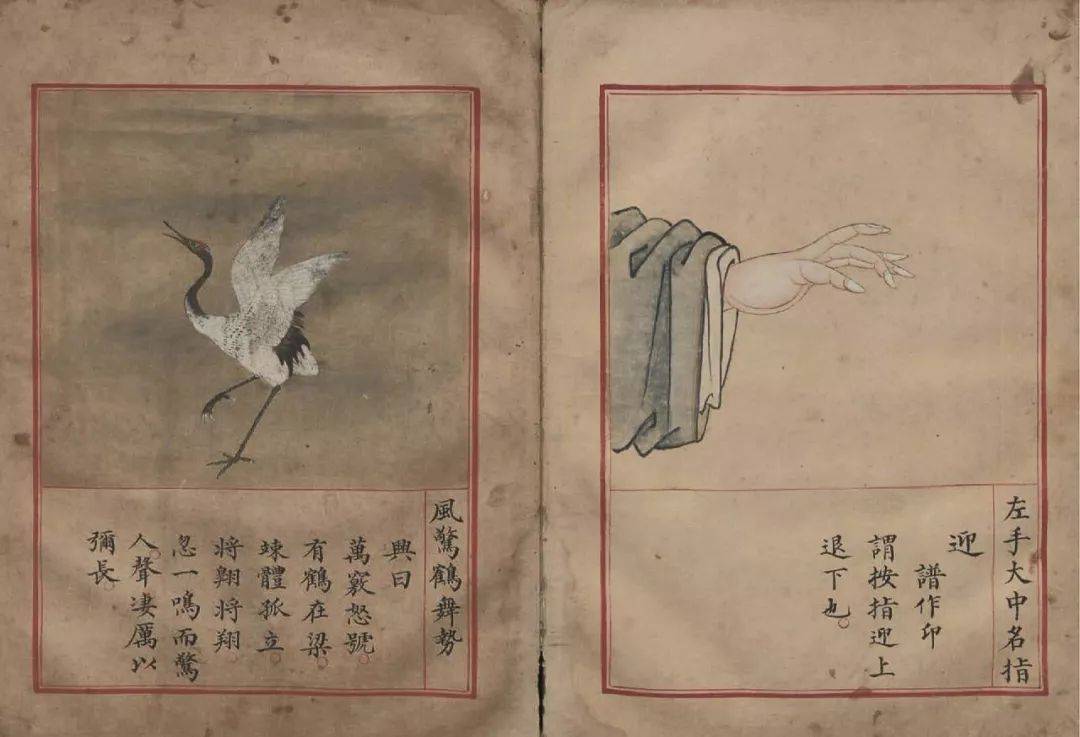 左手大中名指
迎
譜作印
謂按指迎上
退下也。
風驚鶴舞勢
興曰
萬竅怒號。
有鶴在梁。
竦體孤立。
將翺將翔。
忽一鳴而驚
人。聲淒厲以
彌長。